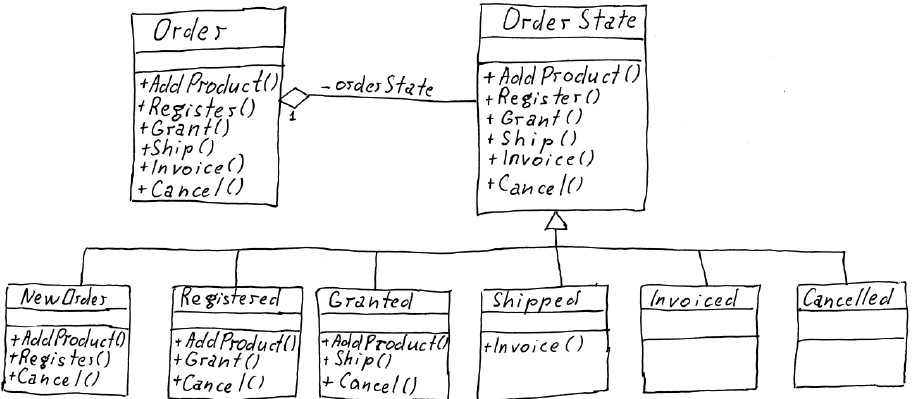 Order
+AddProduct()
+Register()
+Grant()
+Ship()
+Invoice()
+Cancel()
-orderState
1
Order State
+AddProduct()
+Register()
+Grant()
+Ship()
+Invoice()
+Cancel()
NewOrder
+AddProduct()
+Register()
+Cancel()
Registered
+AddProduct()
+Grant()
+Cancel()
Granted
+AddProduct()
+Ship()
+Cancel()
Shipped
+Invoice()
Invoiced
Cancelled